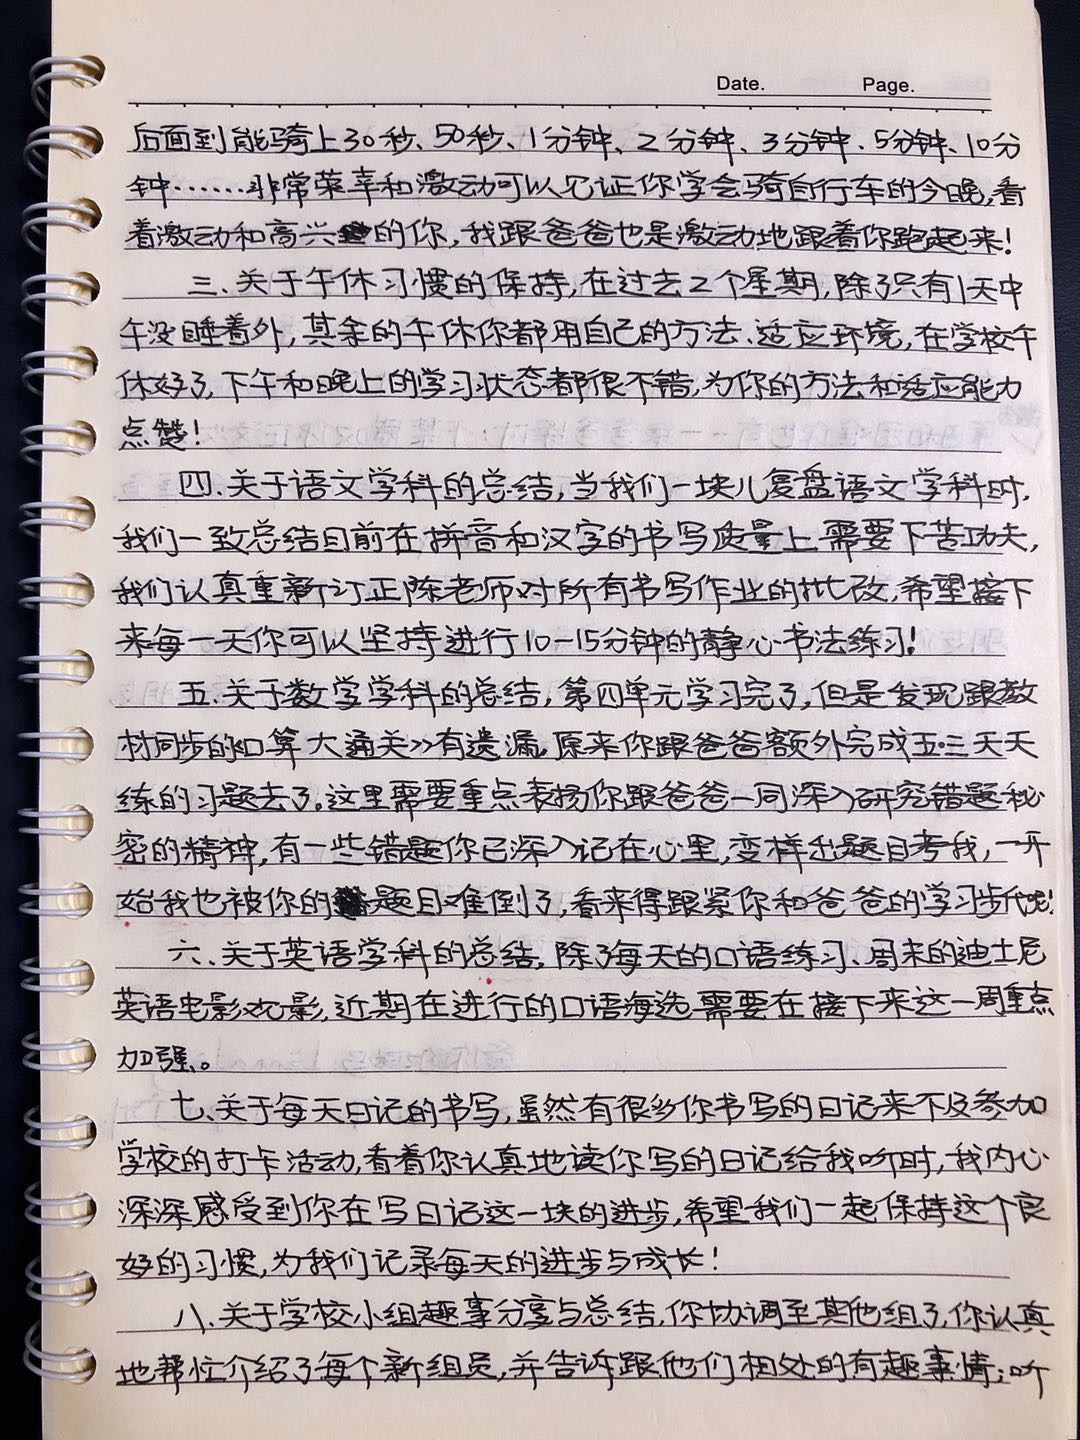 Date. Page.
后面到能骑上30秒、50秒、1分钟、2分钟、3分钟、5分钟、10分
钟……非常荣幸和激动可以见证你学会骑自行车的今晚,看
着激动和高兴的你,我跟爸爸也是激动地跟着你跑起来!
三、关于午休习惯的保持,在过去2个星期,除了只有1天中
午没睡着外,其余的午休你都用自己的方法、适应环境,在学校午
休好了,下午和晚上的学习状态都很不错,为你的方法和适应能力
点赞!
四、关于语文学科的总结,当我们一块儿复盘语文学科时,
我们一致总结目前在拼音和汉字的书写质量上需要下苦功夫,
我们认真重新订正陈老师对所有书写作业的批改,希望接下
来每一天你可以坚持进行10-15分钟的静心书法练习!
五、关于数学学科的总结,第四单元学习完了,但是发现跟教
材同步的《口算大通关》有遗漏,原来你跟爸爸额外完成五·三天天
练的习题去了。这里需要重点表扬你跟爸爸一同深入研究错题秘
密的精神,有一些错题你已深入记在心里,变样出题目考我,一开
始我也被你的题目难倒了,看来得跟紧你和爸爸的学习步伐呢!
六、关于英语学科的总结,除了每天的口语练习、周末的迪士尼
英语电影观影,近期在进行的口语海选需要在接下来这一周重点
加强。
七、关于每天日记的书写,虽然有很多你书写的日记来不及参加
学校的打卡活动,看着你认真地读你写的日记给我听时,我内心
深深感受到你在写日记这一块的进步,希望我们一起保持这个良
好的习惯,为我们记录每天的进步与成长!
八、关于学校小组趣事分享与总结,你协调至其他组了,你认真
地帮忙介绍了每个新组员,并告诉跟他们相处的有趣事情;听